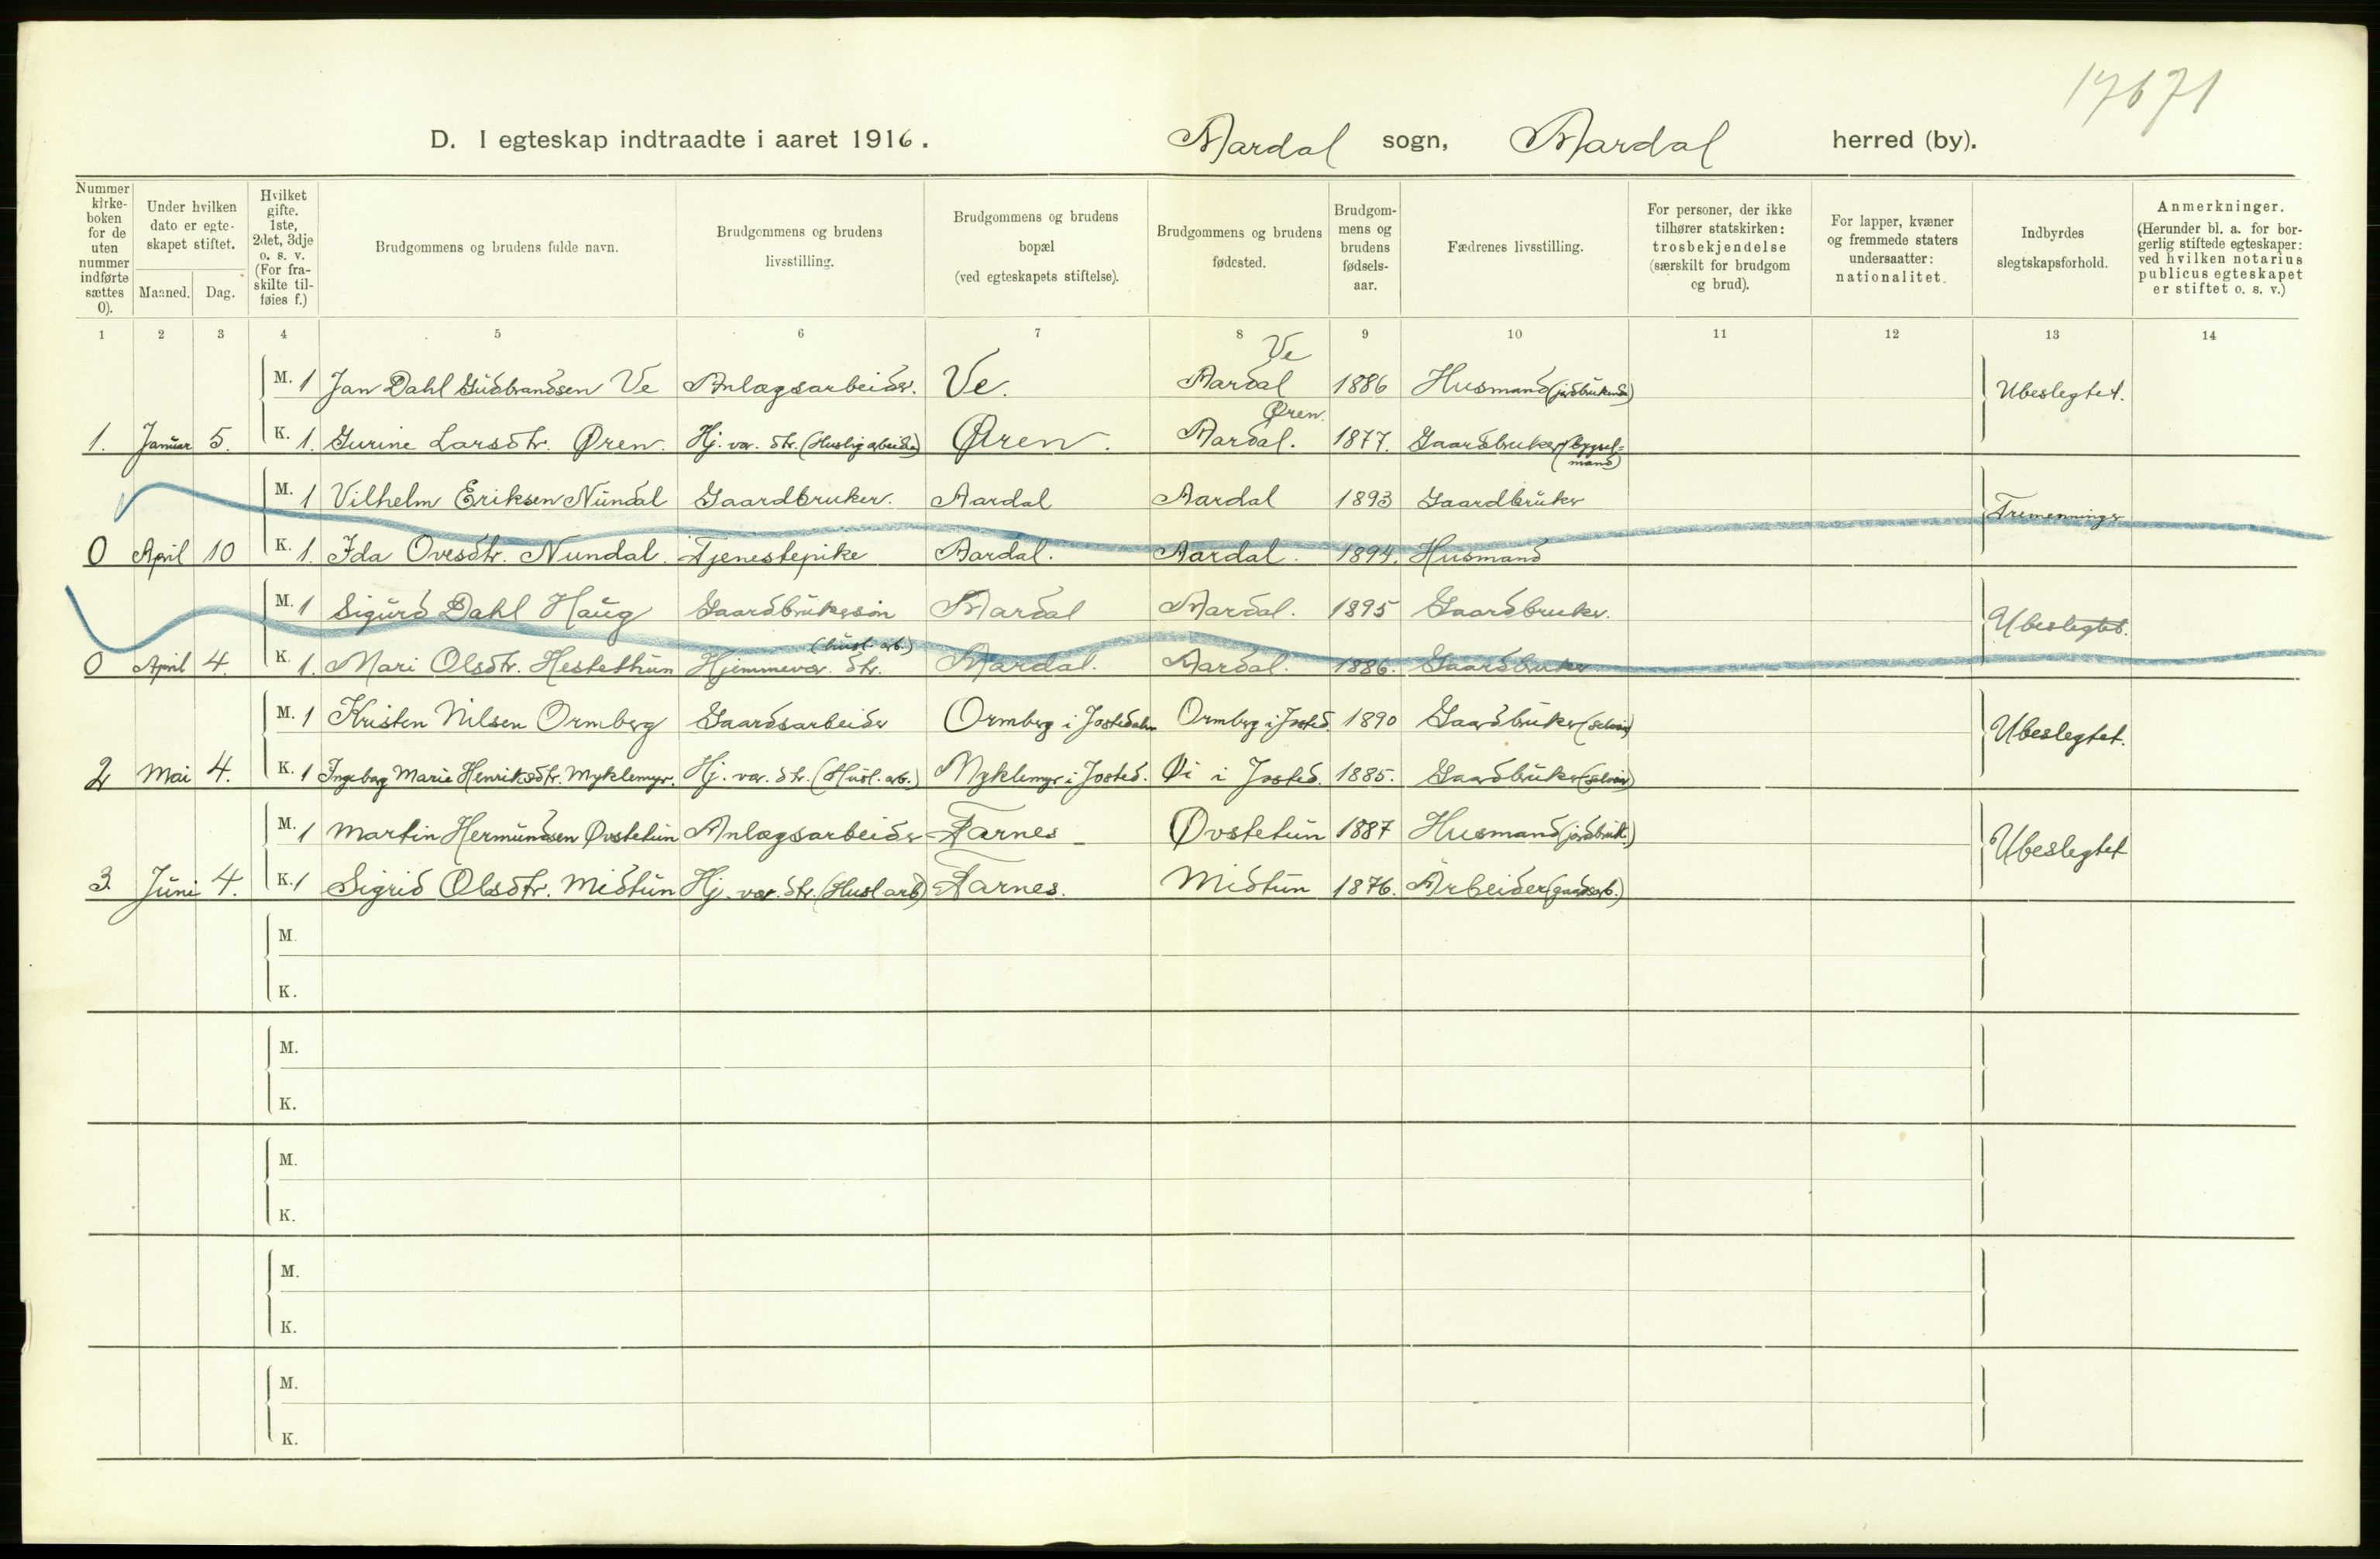 17671
D. I egteskap indtraadte i aaret 1916. Aardal sogn, Aardal herred (by).
Nummer kirke- boken for de uten nummer indførte sættes 0).
Under hvilken dato er egte- skapet stiftet.
Maaned. Dag.
Hvilket gifte. 1ste, 2det, 3dje o. s. v. (For fra- skilte til- føies f.)
Brudgommens og brudens fulde navn.
Brudgommens og brudens livsstilling.
Brudgommens og brudens bopæl (ved egteskapets stiftelse).
Brudgommens og brudens fødested.
Brudgom- mens og brudens fødsels- aar.
Fædrenes livsstilling.
For personer, der ikke tilhører statskirken: trosbekjendelse (særskilt for brudgom og brud).
For lapper, kvæner og fremmede staters undersaatter: nationalitet.
Indbyrdes slegtskapsforhold.
Anmerkninger. (Herunder bl. a. for bor- gerlig stiftede egteskaper: ved hvilken notarius publicus egteskapet er stiftet o. s. v.)
1 2 3 4 5 6 7 8 9 10 11 12 13 14
M. 1 Jan Dahl Gudbrandsen Ve Anlægsarbeider. Ve. Ve Aardal 1886 Husmand (jordbrukende) Ubeslegtet.
1. Januar 5. K. 1. Gurine Larsdtr. Øren. Hj. vær. dtr. (Huslig arbeide) Øren. Øren. Aardal. 1877. Gaardbruker (bygsel- mand)
M. 1 Vilhelm Eriksen Nundal Gaardbruker. Aardal Aardal 1893 Gaardbruker Tremenninger
0 April 10 K. 1. Ida Ovesdtr. Nundal. Tjenestepike Aardal. Aardal. 1894. Husmand
M. 1 Sigurd Dahl Haug Gaardbrukersøn Aardal Aardal. 1895 Gaardbruker. Ubeslegtet.
0 April 4. K. 1. Mari Olsdtr. Hestethun Hjemmevær. dtr. (husl. arb.) Aardal. Aardal. 1886. Gaardbruker
M. 1 Kristen Nilsen Ormberg Gaardsarbeider Ormberg i Jostedalen Ormberg i Josted. 1890 Gaardbruker (selveier) Ubeslegtet.
2 Mai 4. K. 1 Ingeborg Marie Henriksdtr. Myklemyr. Hj. vær. dtr. (Husl. arb.) Myklemyr i Josted. Øi i Josted. 1885. Gaardbruker (selveier)
M. 1 Martin Hermundsen Øvstetun Anlægsarbeider Farnes Øvstetun 1887 Husmand (jordbruk.) Ubeslegtet
3. Juni 4. K. 1 Sigrid Olsdtr. Midtun Hj. vær. dtr. (Husl arb) Farnes. Midtun 1876. Arbeider (gaardsarb.)
M.
K.
M.
K.
M.
K.
M.
K.
M.
K.